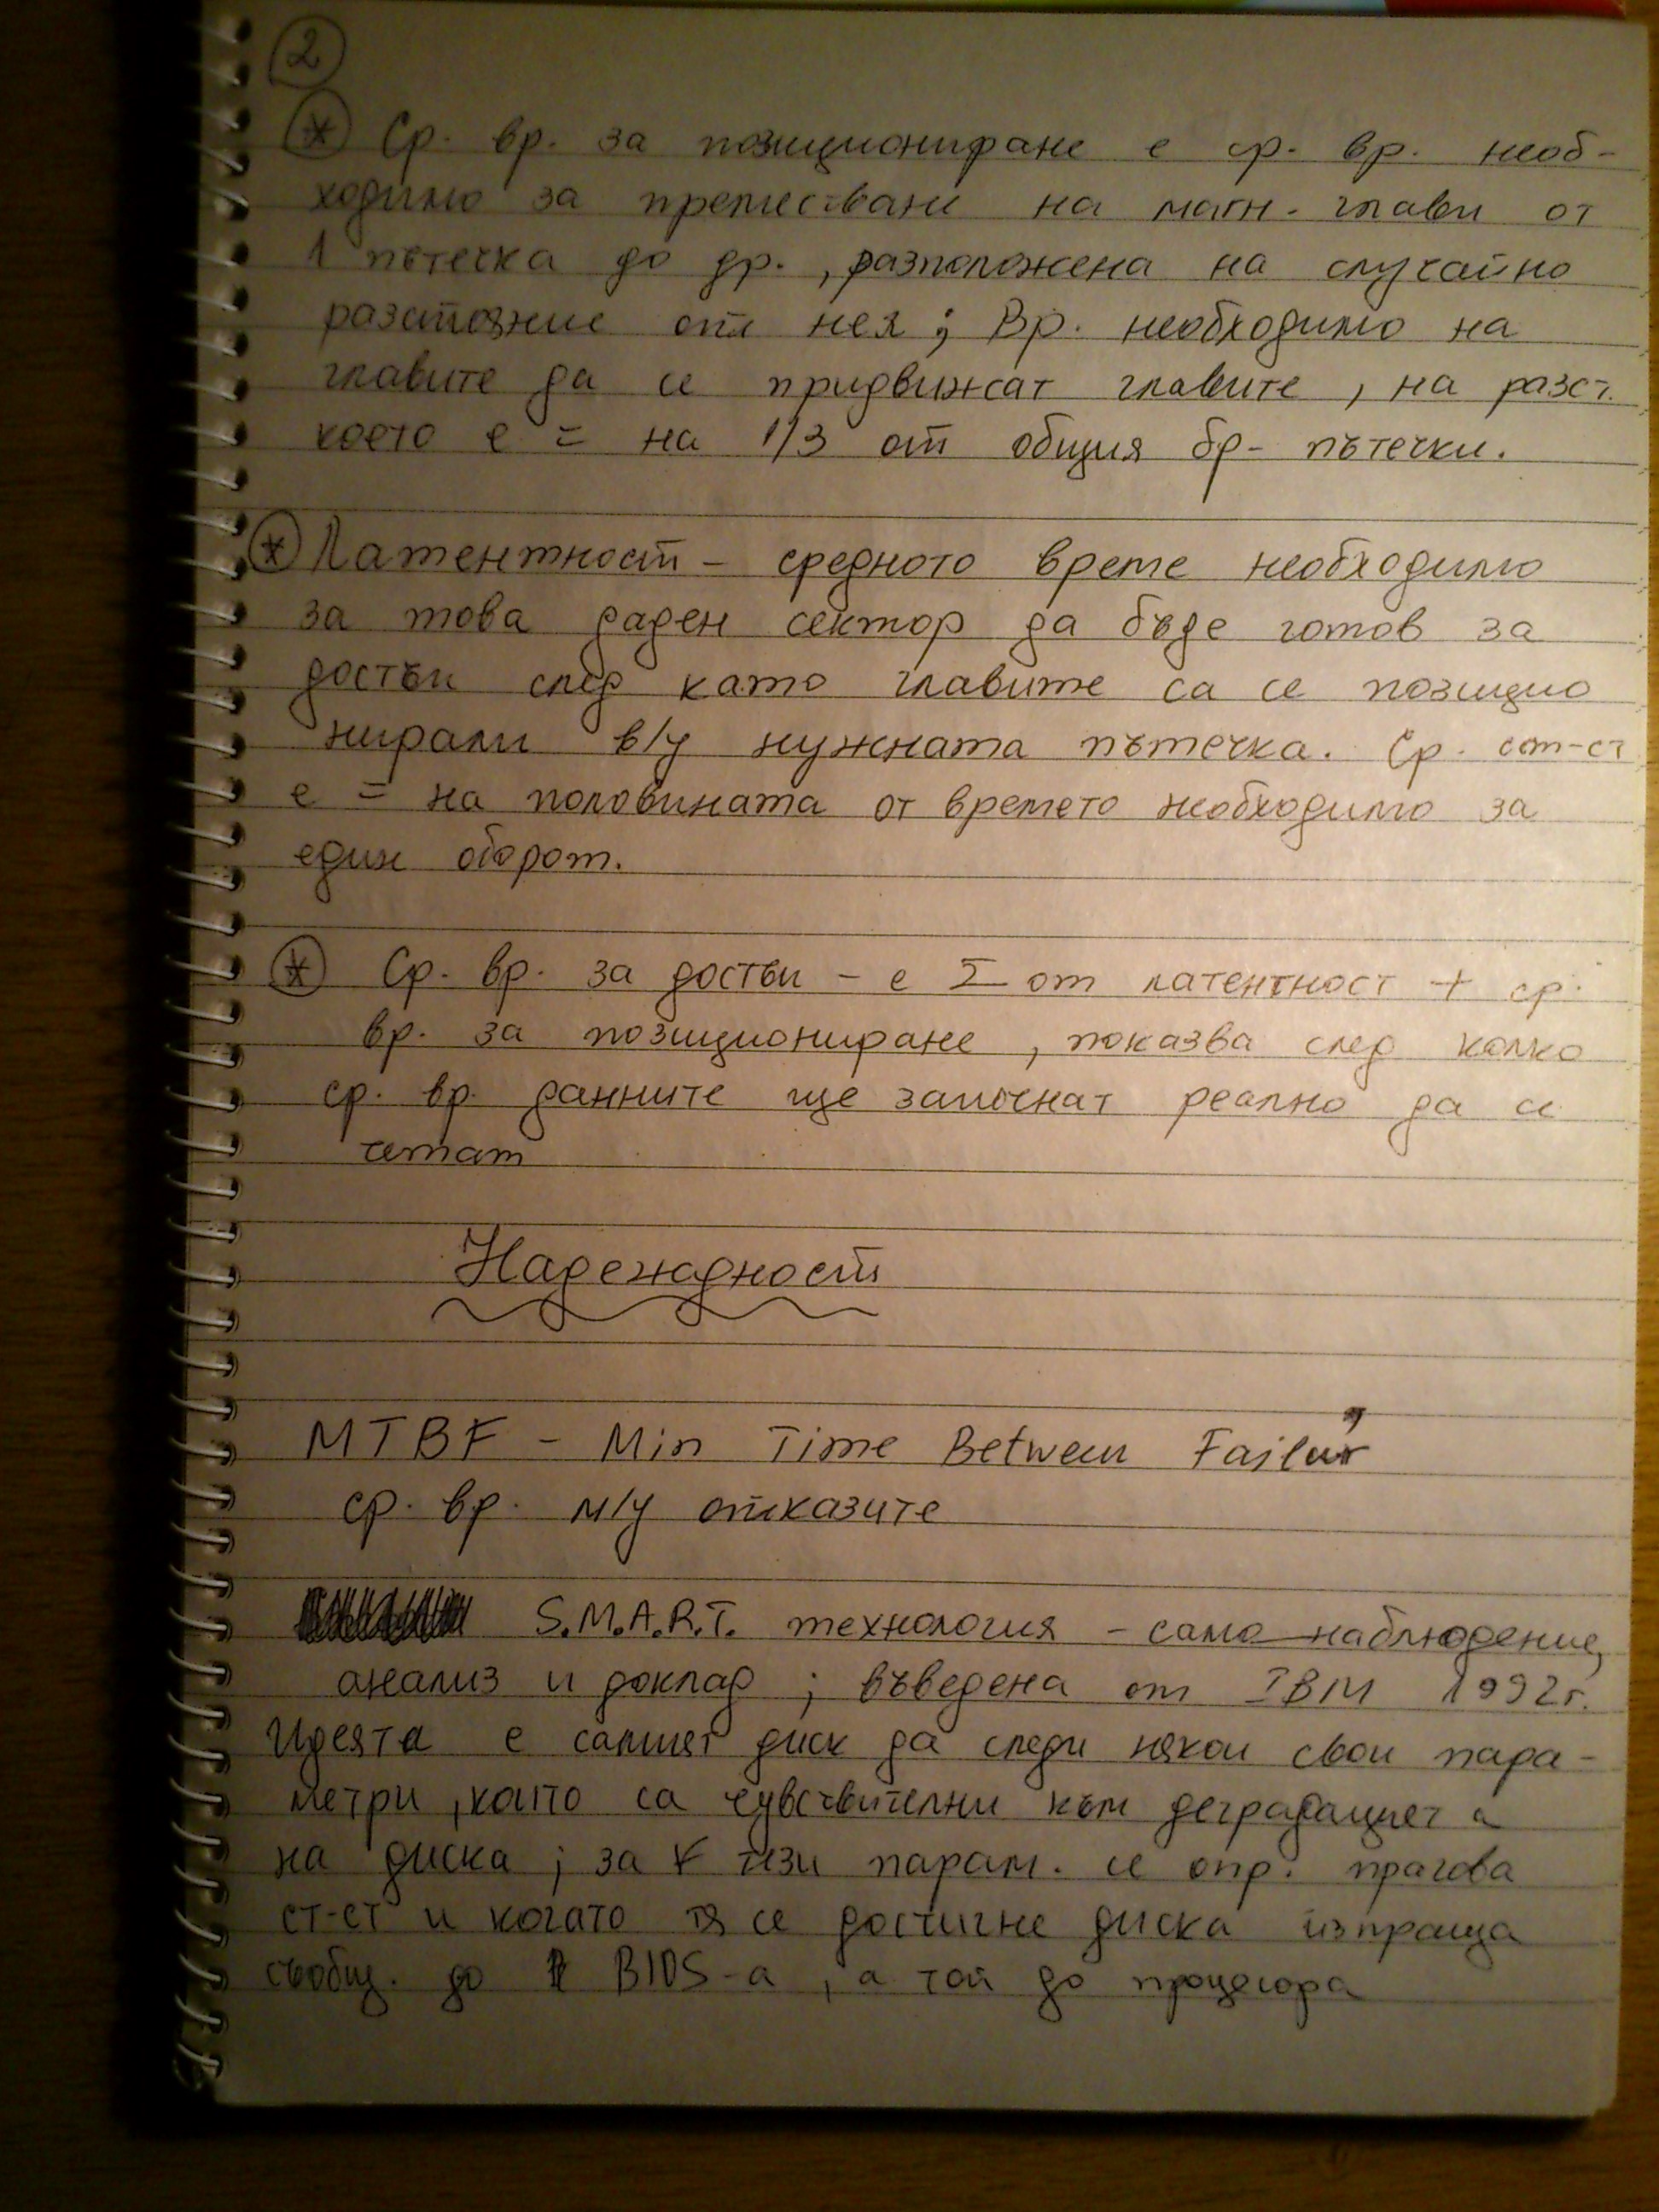 2
* Ср. вр. за позициониране е ср. вр. необ-
ходимо за преместване на магн. глави от
1 пътечка до др., разположена на случайно
разстояние от нея; Вр. необходимо на
главите да се придвижат главите, на разст.
което е = на 1/3 от общия бр. пътечки.
* Латентност - средното време необходимо
за това даден сектор да бъде готов за
достъп след като главите са се позицио
нирали в/у нужната пътечка. Ср. ст-ст
е = на половината от времето необходимо за
един оборот.
* Ср. вр. за достъп - е Σ от латентност + ср.
вр. за позициониране, показва след колко
ср. вр. данните ще започнат реално да се
четат
Надеждност
MTBF - Min Time Between Failur
ср. вр. м/у отказите
S.M.A.R.T. технология - само наблюдение,
анализ и доклад; въведена от IBM 1992г.
Идеята е самият диск да следи някои свои пара-
метри, които са чувствителни към деградацията
на диска; за ∀ тези парам. се опр. прагова
ст-ст и когато тя се достигне диска изпраща
съобщ. до BIOS-а, а той до процесора